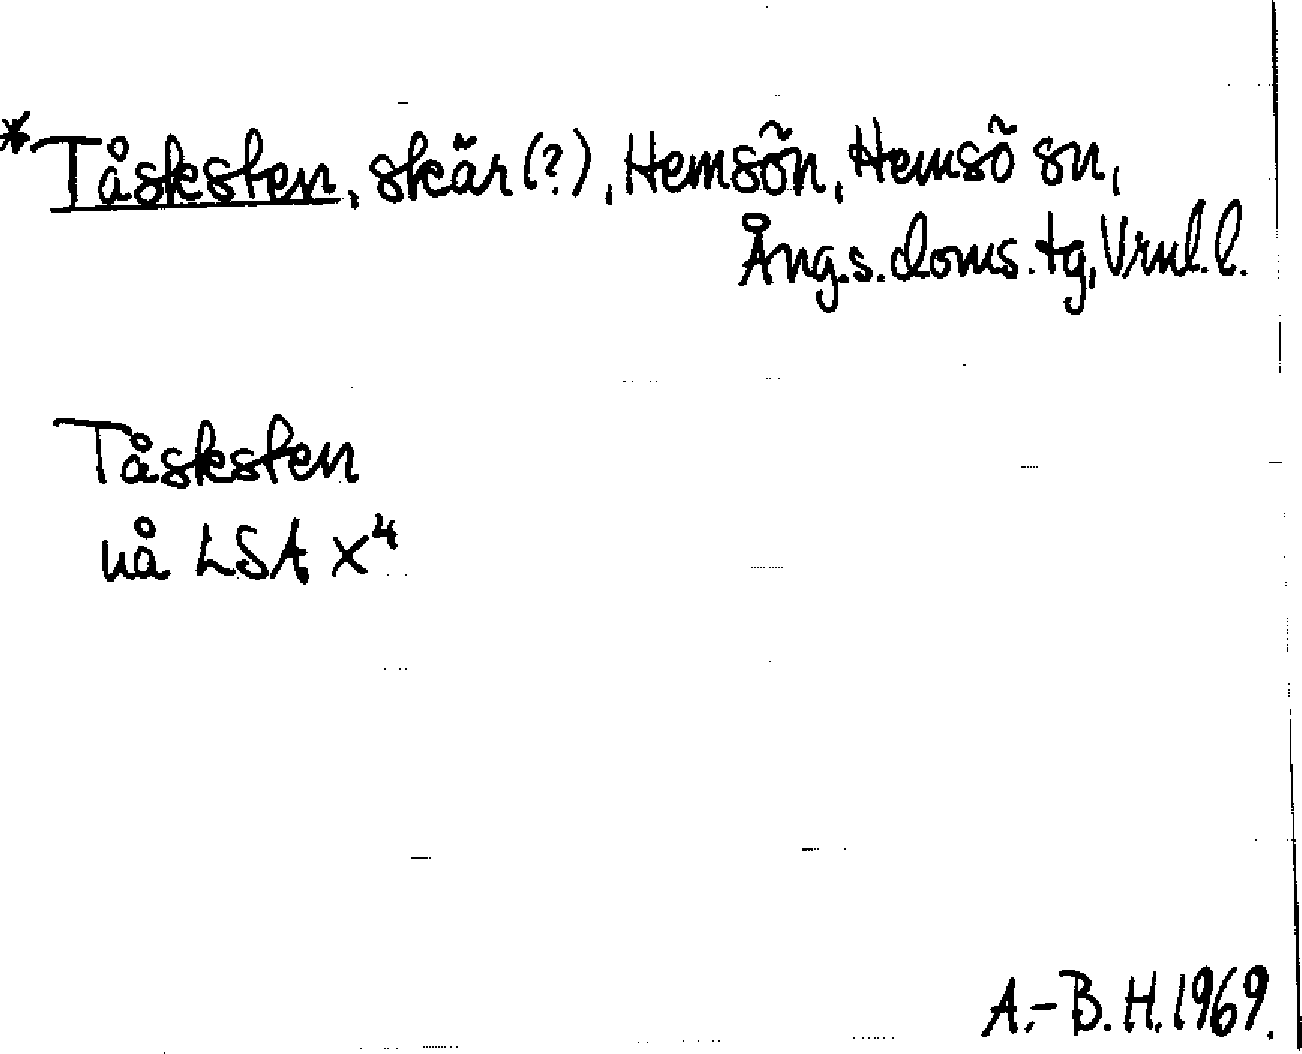 *Tåsksten, skär (?), Hemsön, Hemsö sn,
Ång.s. doms. tg, Vrnl. l.
Tåsksten
nå LSA X⁴
A.-B. H. 1969.